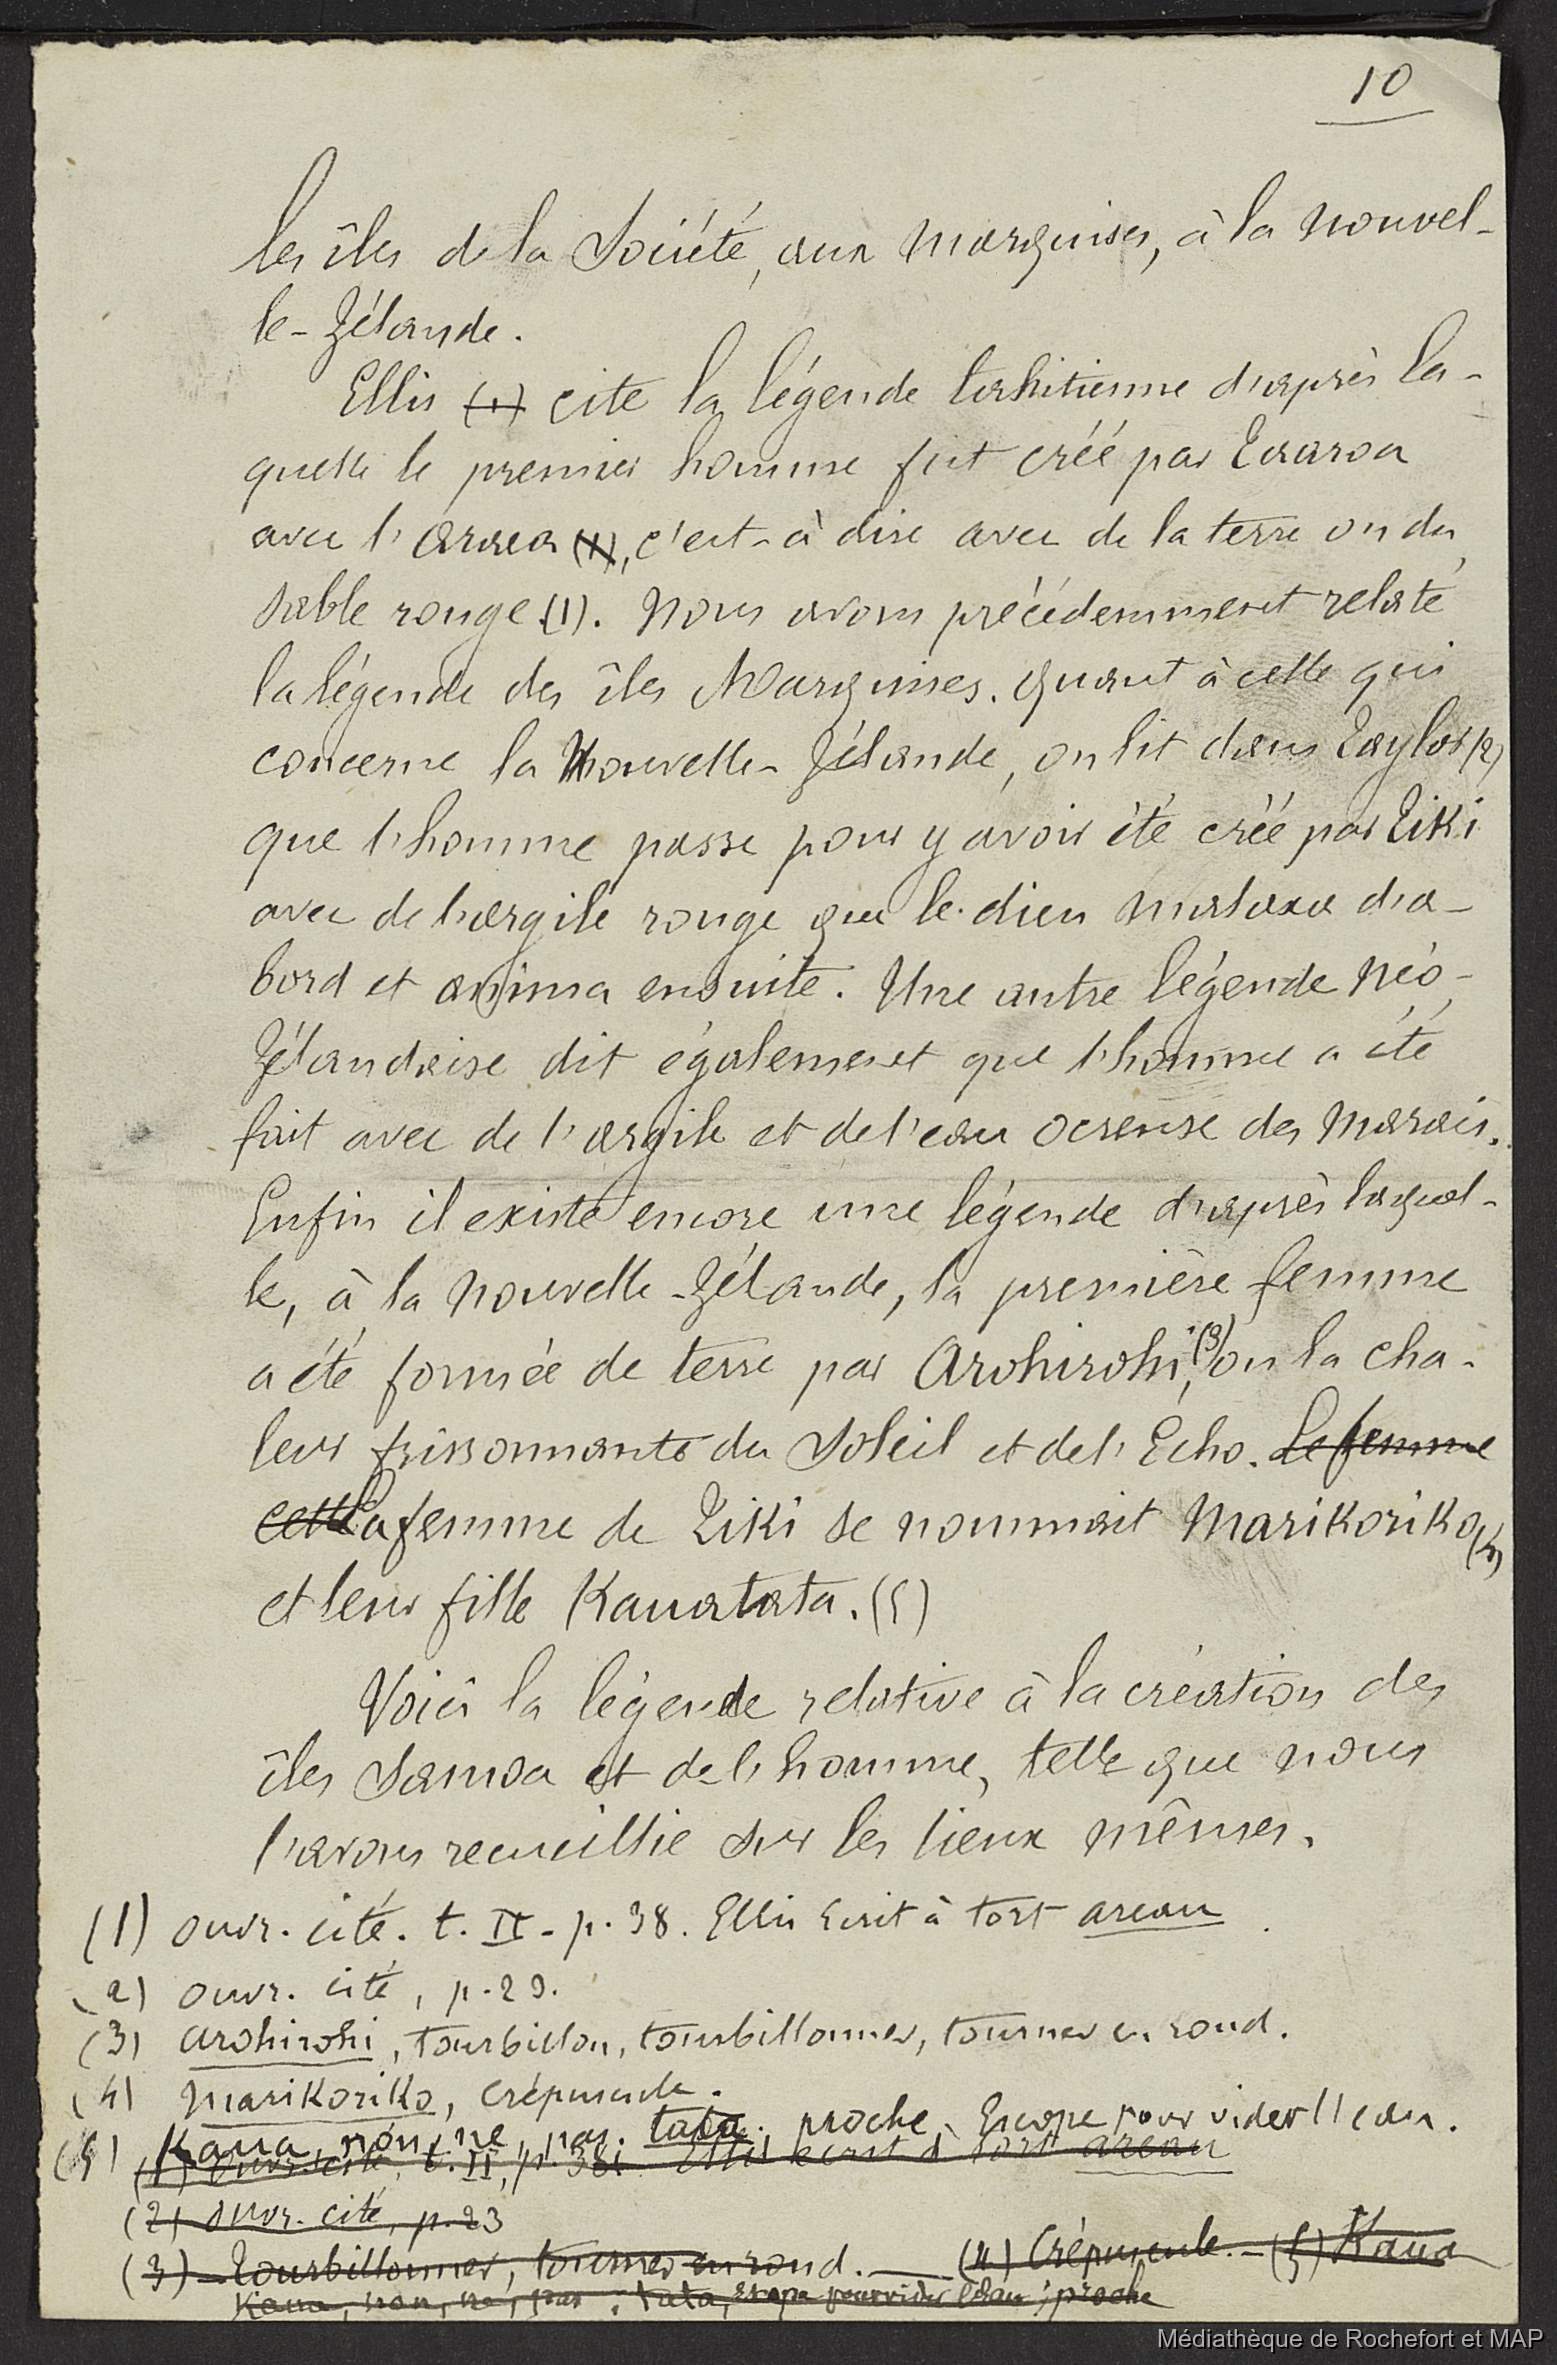 10
les îles de la Société, aux Marquises, à la Nouvel-
le-Zélande.
Ellis (1) cite la légende tahitienne d'après la-
quelle le premier homme fut créé par Taaroa
avec l'araea (1), c'est-à dire avec de la terre ou du
sable rouge (1). Nous avons précédemment relaté
la légende des îles Marquises. Quant à celle qui
concerne la Nouvelle-Zélande, on lit dans Taylor (2)
que l'homme passe pour y avoir été créé par Tiki
avec de l'argile rouge que le dieu malaxa d'a-
bord et anima ensuite. Une autre légende néo-
Zélandaise dit également que l'homme a été
fait avec de l'argile et de l'eau ocreuse des marais.
Enfin il existe encore une légende d'après laquel-
le, à la Nouvelle-Zélande, la première femme
a été formée de terre par Arohirohi, (3) ou la cha-
leur frissonnante du Soleil et de l'Echo. Le femme
cette La femme de Tiki se nommait Marikoriko (4)
et leur fille Kauatata. (5)
Voici la légende relative à la création des
îles Samoa et de l'homme, telle que nous
l'avons recueillie sur les lieux mêmes.
(1) ouvr. cité. t. II - p. 38. Ellis écrit à tort areau
(2) ouvr. cité, p. 23.
(3) arohirohi, tourbillon, tourbillonner, tourner en rond.
(4) Marikoriko, crépuscule.
(5) Kaua, non, ne, pas. tata, proche, Escope pour vider l'eau.
(1) ouvr. cité, t. II, p. 38. Ellis écrit à tort areau
(2) ouvr. cité, p. 23
(3) Tourbillonner, tourner en rond. — (4) Crépuscule. - (5) Kaua
Kaua, non, ne, pas ; tata, Escope pour vider l'eau ; proche
Médiathèque de Rochefort et MAP